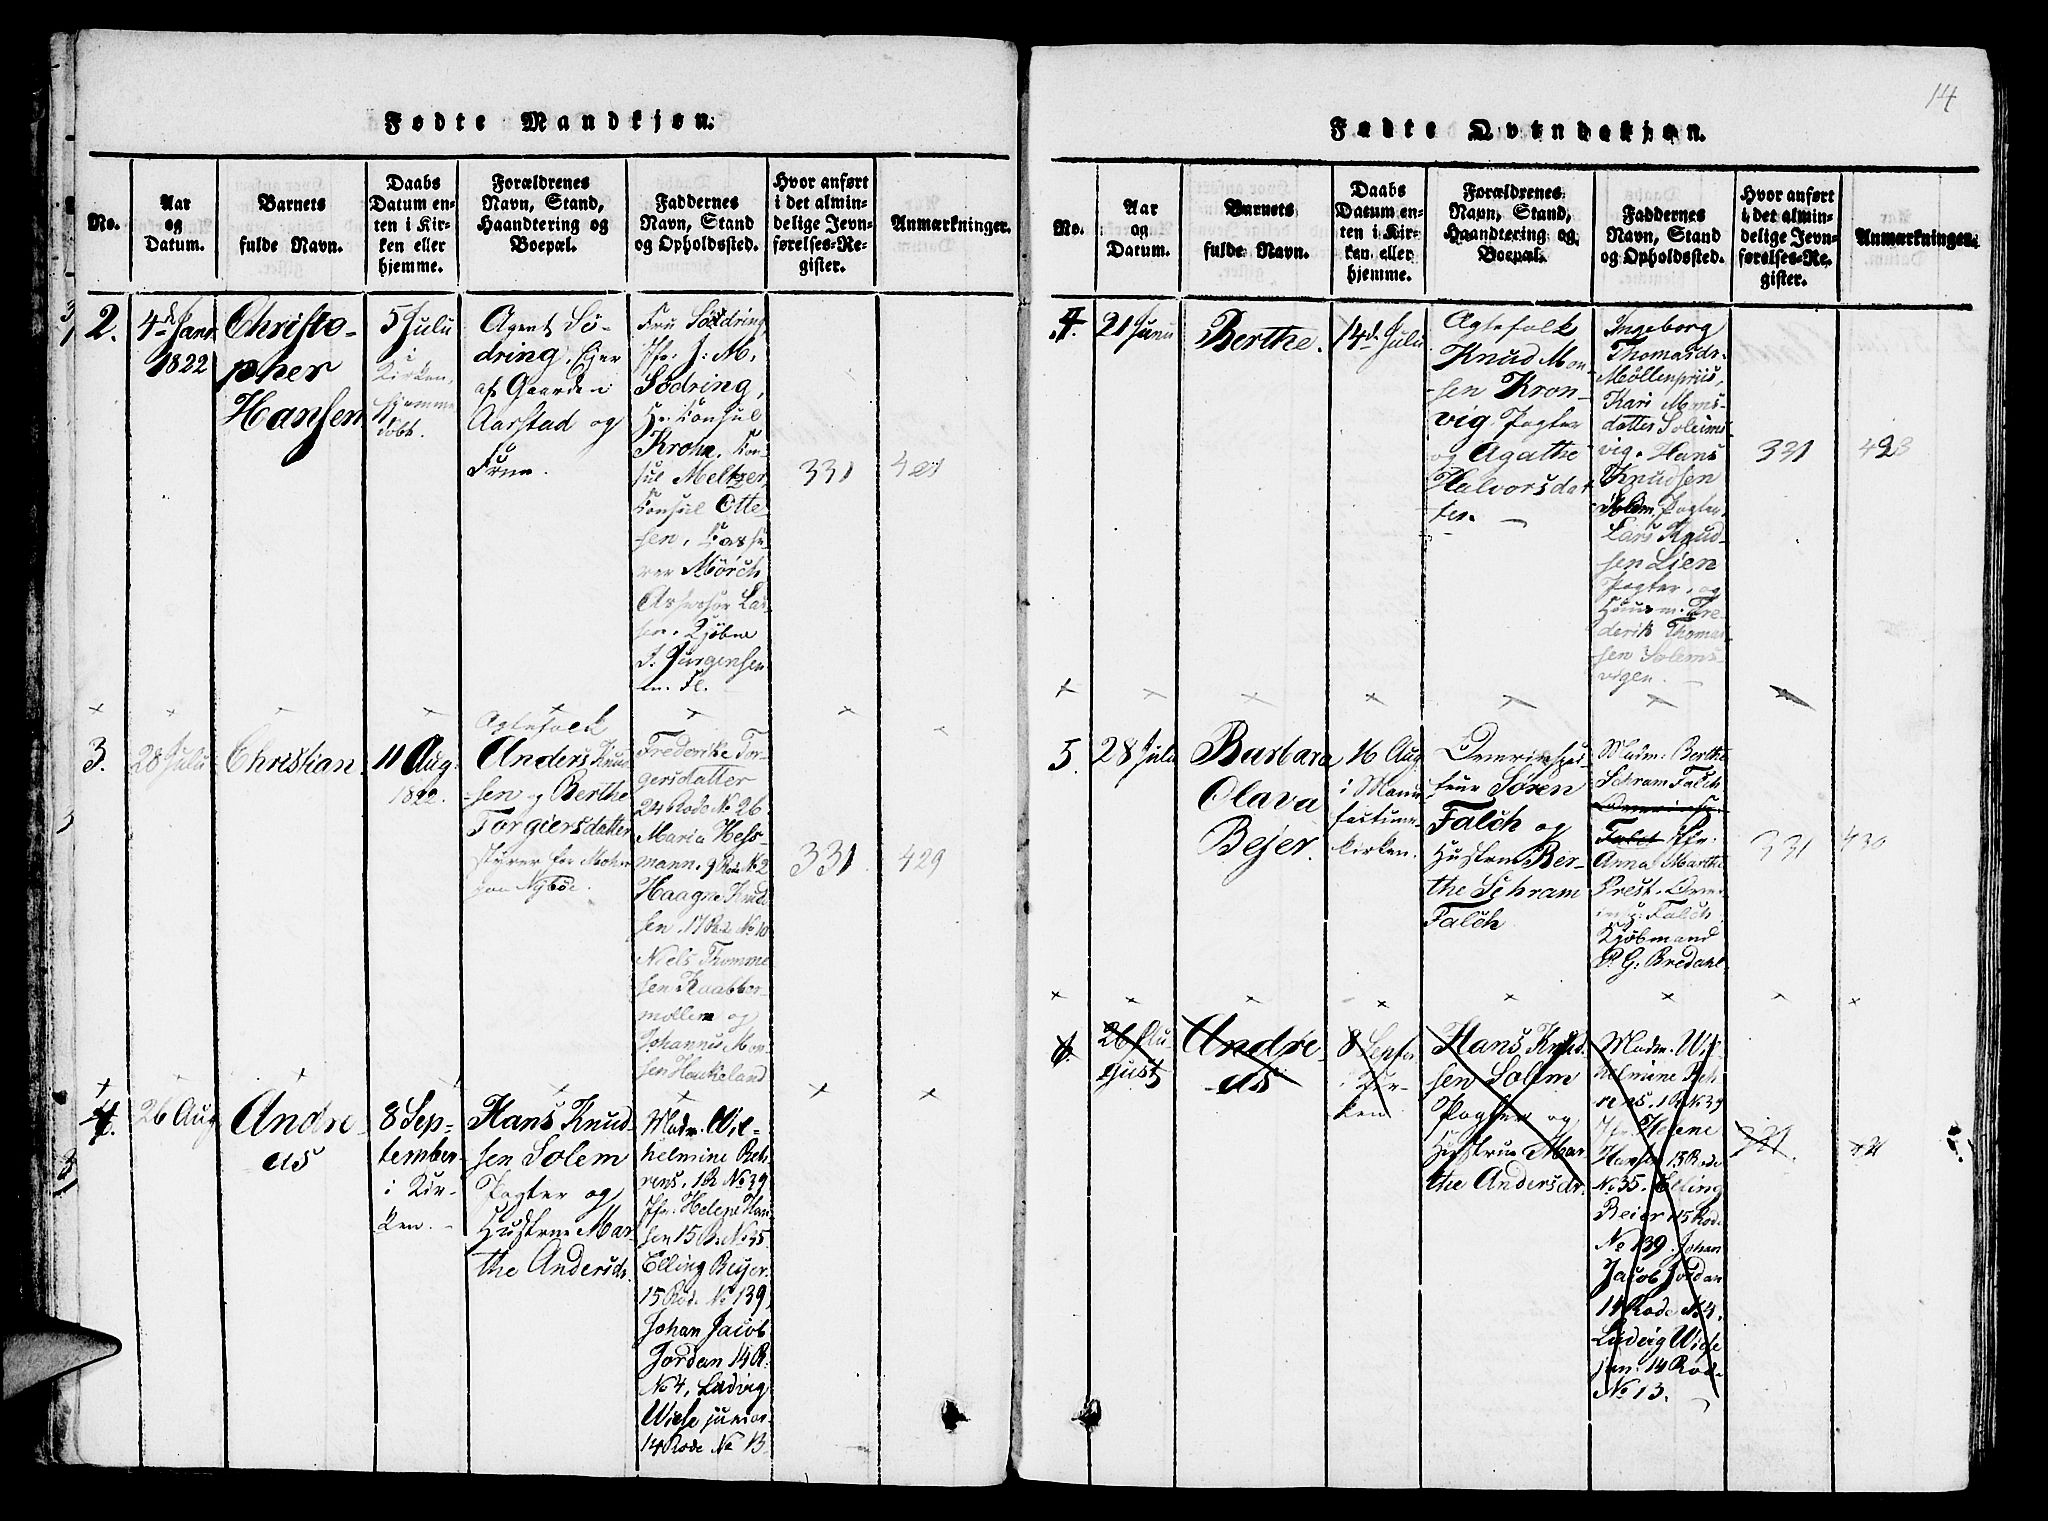 14
Fødte Mandkjøn.
No.
Aar
og
Datum.
Barnets
fulde Navn.
Daabs
Datum en-
ten i Kir-
ken eller
hjemme.
Forældrenes
Navn, Stand,
Haandtering og
Boepæl.
Faddernes
Navn, Stand
og Opholdssted.
Hvor anført
i det almin-
delige Jevn-
førelses-Re-
gister.
Anmærkninger.
2.
4de Janr
1822
Christo-
pher
Hansen
5 Julu
i
Kirken,
hjemme
döbt.
Agent Sö-
dring, Ejer
af Gaarde i
Aarstad og
Frue.
Fru Södring
Jfr. J. M.
Södring,
Hr. Konsul
Krohn, Kon-
sul Meltzer,
Konsul Otte
sen, Kasse-
rer Mörch
Assessor Lar
sen,
J. Jürgensen
m. Fl.
331
3.
28 Julu
Christian.
11 Aug.
1822.
Ægtefolk
Anders Knud
sen og Berthe
Torgiersdatter
styrer for
paa Nyböe.
Frederike Tor-
gersdatter
24 Rode No 26
Maria Hess
mann, 9 Rode No 2
Haagne Knud
sen. 17 Rode No 10
Niels Thomme
sen Knabbor-
möllen og
Johannes Mon-
sen Houkeland
331
429
4.
26 Aug
Andre-
as
8 Sep-
tember
i Kir-
ken.
Hans Knud-
sen Solem
Pogter og
Hustrue Mar
the Andersdr.
Madm. Wil-
helmine Beh
rens. 1 R No 39
Jfr. Helene Han
sen 15 R. No 35
Elling Beyer
15 Rode No 139,
Johan Jacob
Jordan 14 R.
No 4, Ludvig
Wiese junior
14 Rode No 13
Fødte Qvindekjøn.
No.
Aar
og
Datum.
Barnets
fulde Navn.
Daabs
Datum en-
ten i Kir-
ken eller
hjemme.
Forældrenes
Navn, Stand,
Haandtering og
Boepæl.
Faddernes
Navn, Stand
og Opholdssted.
Hvor anført
i det almin-
delige Jevn-
førelses-Re-
gister.
Anmærkninger.
4.
21 Junu
Berthe.
14de Julu
Ægtefolk
Knud Mon-
sen Kron-
vig Pogter
og Agathe
Halvorsdat
ter.
Ingeborg
Thomasdr.
Möllenpriis,
Kari Mons-
datter Solems
vig. Hans
Knudsen
Solem, Pogter,
Lars Knud-
sen Lien
Pogter, og
Huusm. Fre
derik Thomas
sen Solems-
vigen.
331
423
5.
28 Julu
Barbara
Olava
Bejer.
16 Aug.
i Manu
factuur-
kirken.
Sören
Falch og
Hustrue Ber-
the Schram
Falch
Madm. Berthe
Schram Falch
Jfr.
Anna Marthe
Prest.
Falch
Kjöbmand
P. G: Bredahl
331
430
6.
26 Au-
gust
Andre-
as
8 Septr
i Kir-
ken
Hans Knud-
sen Solem
Pogter og
Hustrue Mar
the Andersdr.
Madm. Wil-
helmine Beh
rens. 1 R No 39
Jfr. Helene
Hansen 15 Rode
No 35. Elling
Beier 15 Rode
No 139. Johan
Jacob Jordan
14 Rode No 4.
Ludvig Wiese
jun. 14 Rode
No 13.
331.